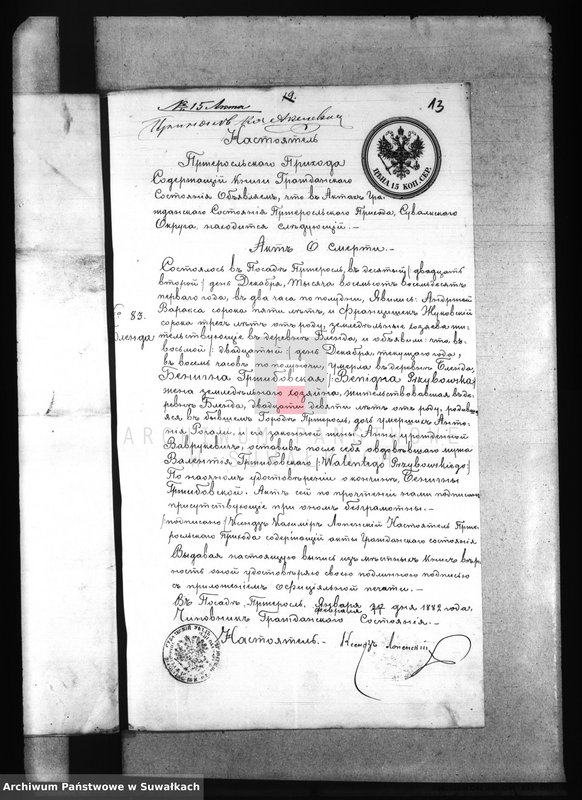 № 15 Анта
19.
13
Настоятель
Пржеросльскаго Прихода
Содержащій книги Гражданскаго
Состоянія Объявляемъ, что въ Актахъ Гра-
жданскаго Состоянія Пржеросльскаго Прихода, Сувалкскаго
Округа находится слѣдующій.-
ЦѢНА 15 КОП. СЕР.
Актъ О смерти.-
№ 83.
Бленда
Состоялось въ Посадѣ Пржеросль, въ десятый /: двадцать
второй :/ день Декабря, тысяча восемьсотъ восемьдесятъ
перваго года, въ два часа по полудни, Явились: Андржей
Варакса сорока пяти лѣтъ, и Францишекъ Жуковскій
сорока трехъ лѣтъ отъ роду, земледѣльцы хозяева жи-
тельствующіе въ деревнѣ Бленда, и объявили: что въ
восьмой /: двадцатый :/ день Декабря, текущаго года,
въ восемь часовъ по полуночи, умерла въ деревнѣ Бленда,
Бенигна Гржибовская /: Benigna Grzybowska
жена земледѣльнаго хозяина, жительствовавшая въ де-
ревнѣ Бленда, двадцати девяти лѣтъ отъ роду, родивша-
яся въ бывшемъ Городѣ Пржеросль, дочь умершихъ Анто-
нія Рогали, и его законной жены Анны урожденной
Ваврукевичъ, оставивъ послѣ себя овдовѣвшаго мужа
Валентія Гржибовскаго /: Walentego Grzybowskiego :/
По наочномъ удостовѣреніи о кончинѣ Бенигны
Гржибовской. Актъ сей по прочтеніи нами подписанъ
присутствующіе при ономъ безграмотны.-
/подписано/ Ксендзъ Казиміръ Лопенскій Настоятель Прже-
росльскаго Прихода содержащій акты Гражданскаго состоянія
Выдавая настоящую выпись изъ мѣстныхъ книгъ вѣр-
ность оной удостовѣряю своею подлинною подписью
съ приложеніемъ оффиціальной печати.-
Въ Посадѣ Пржеросль, Января Февраля дня 1882 года.
Чиновникъ Гражданскаго Состоянія.-
Настоятель.- Ксендзъ Лопенскій
Archiwum Państwowe w Suwałkach